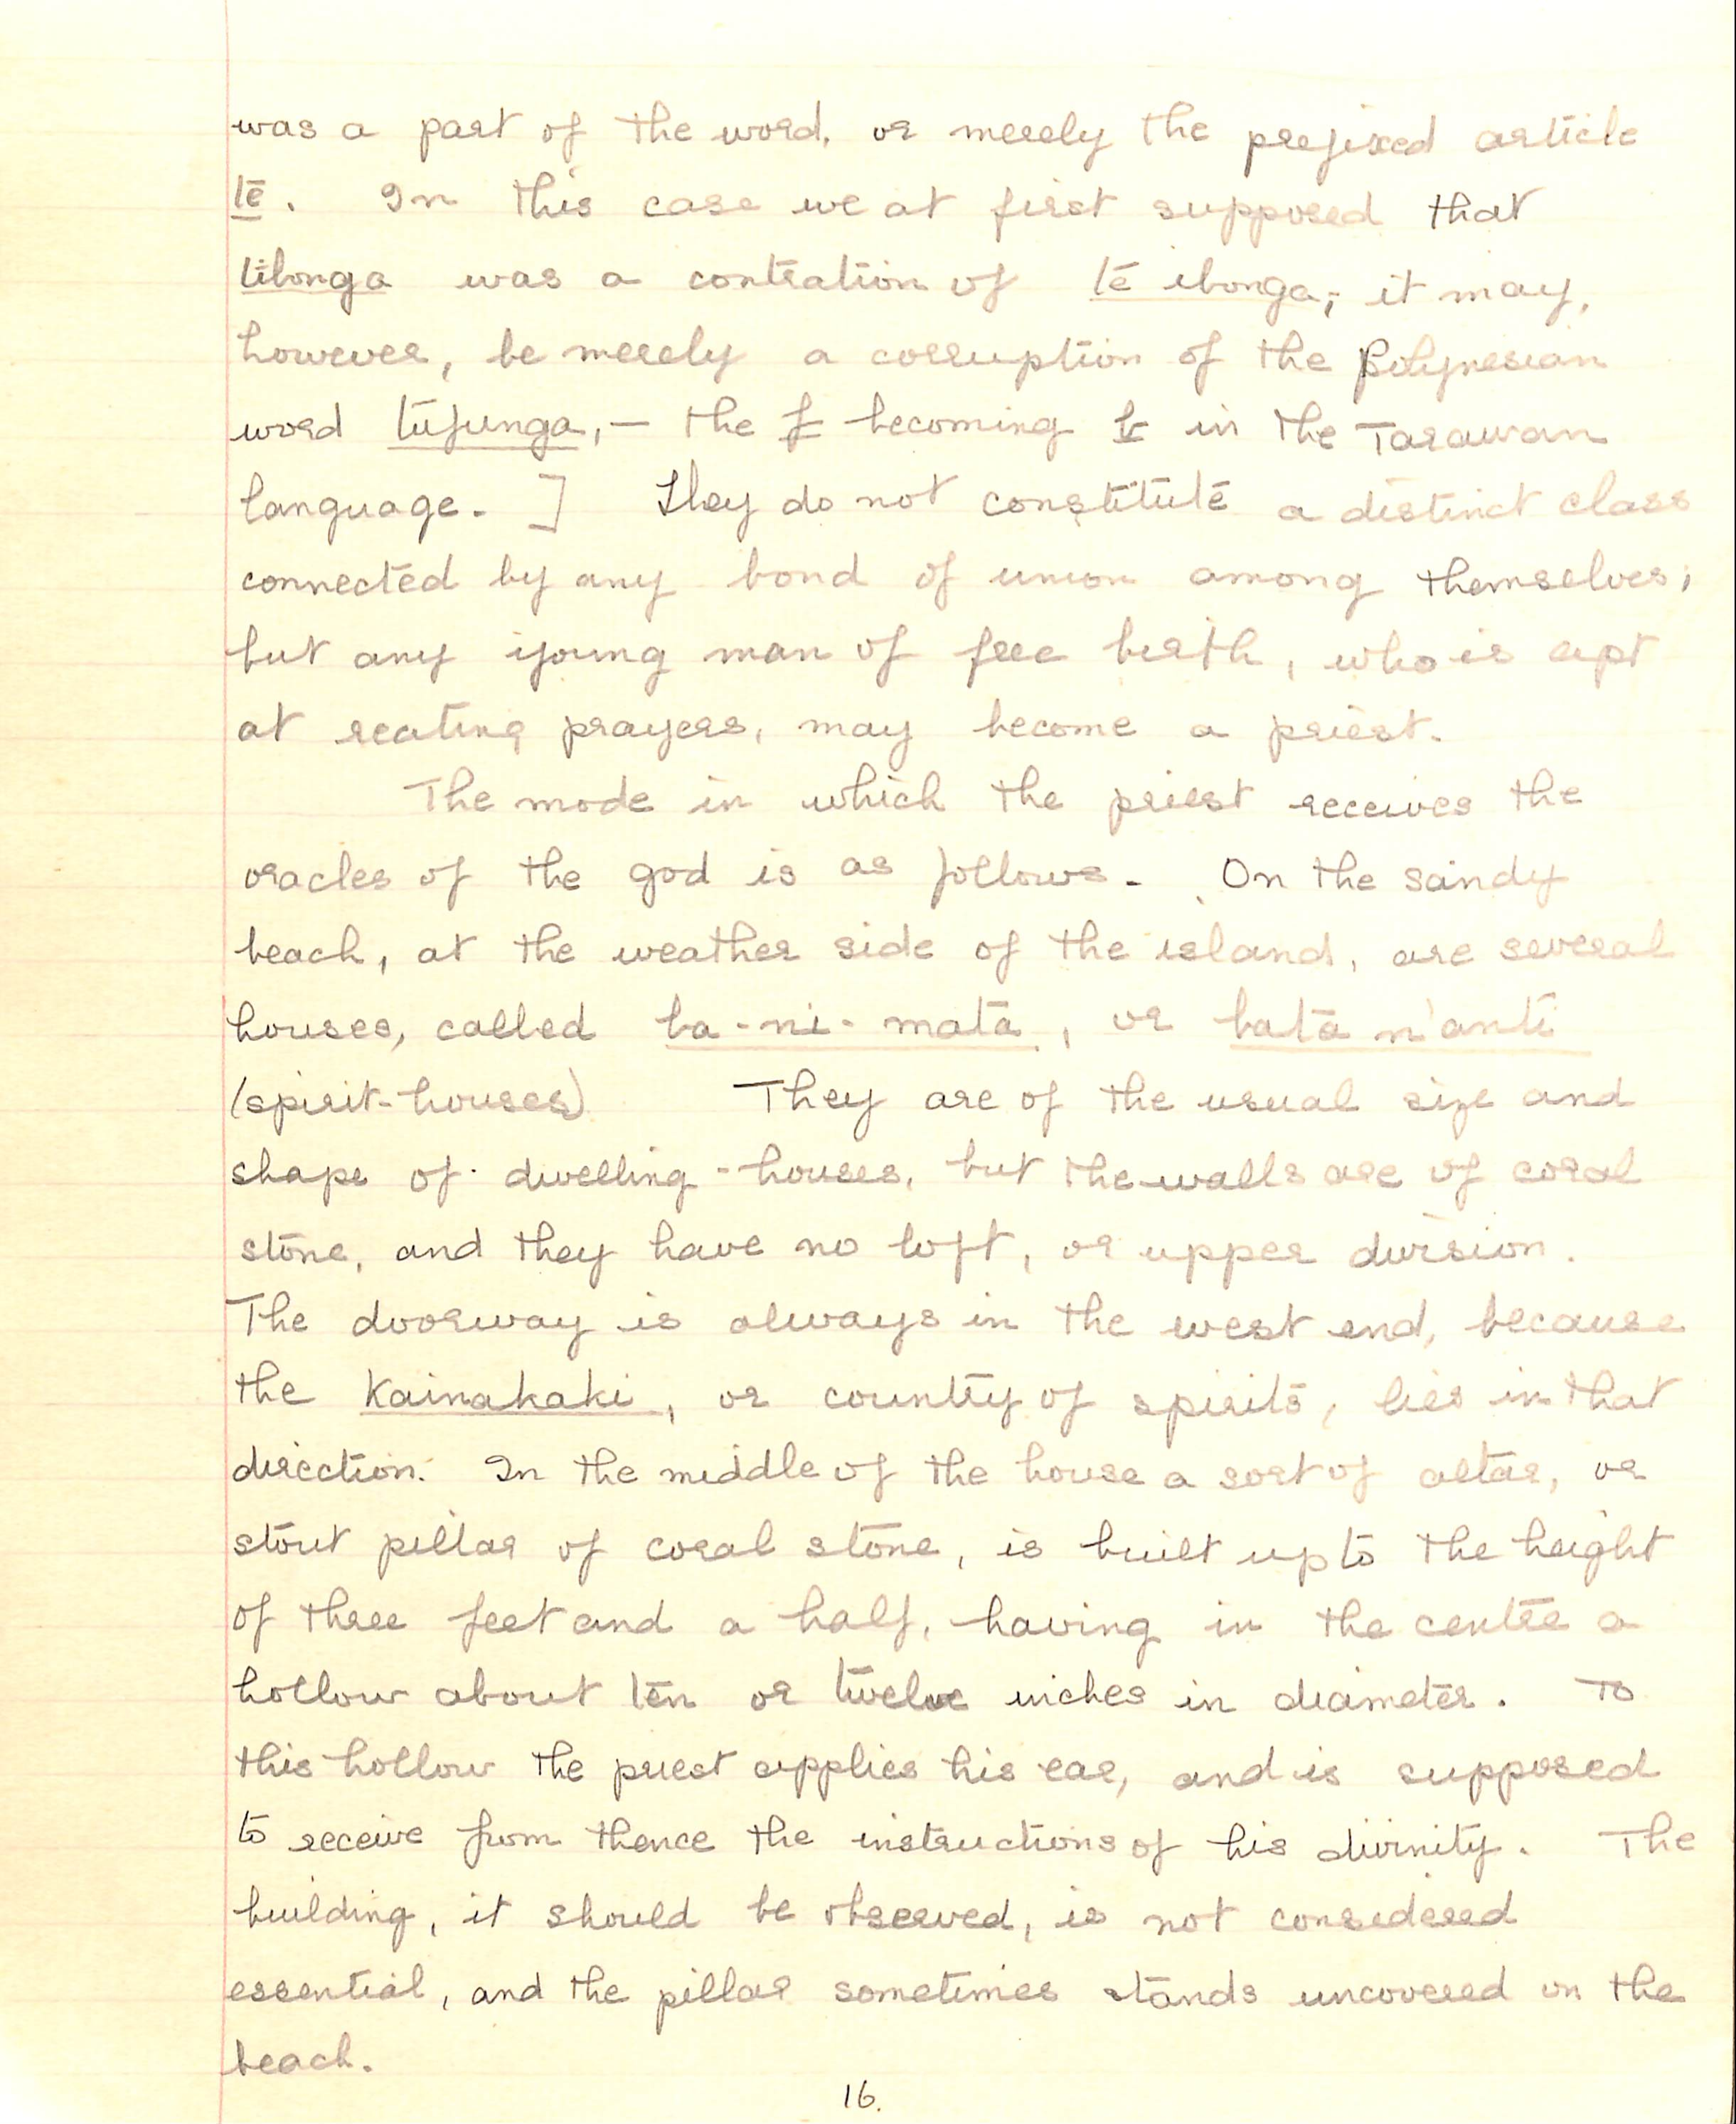 was a part of the word, or merely the prefixed article
te. In this case we at first supposed that
tibonga was a contration of te ibonga; it may,
however, be merely a corruption of the Polynesian
word tufunga,— the f becoming b in the Tarawan
language. ] They do not constitute a distinct class
connected by any bond of union among themselves;
but any young man of free birth, who is apt
at reating prayers, may become a priest.
The mode in which the priest receives the
oracles of the god is as follows. On the sandy
beach, at the weather side of the island, are several
houses, called ba-ni-mata, or bata n'anti
(spirit-houses) They are of the usual size and
shape of dwelling-houses, but the walls are of coral
stone, and they have no loft, or upper division.
The doorway is always in the west end, because
the Kainakaki, or country of spirits, lies in that
direction. In the middle of the house a sort of altar, or
stout pillar of coral stone, is built up to the height
of three feet and a half, having in the centre a
hollow about ten or twelve inches in diameter. To
this hollow the priest applies his ear, and is supposed
to receive from thence the instructions of his divinity. The
building, it should be observed, is not considered
essential, and the pillar sometimes stands uncovered on the
beach.
16.